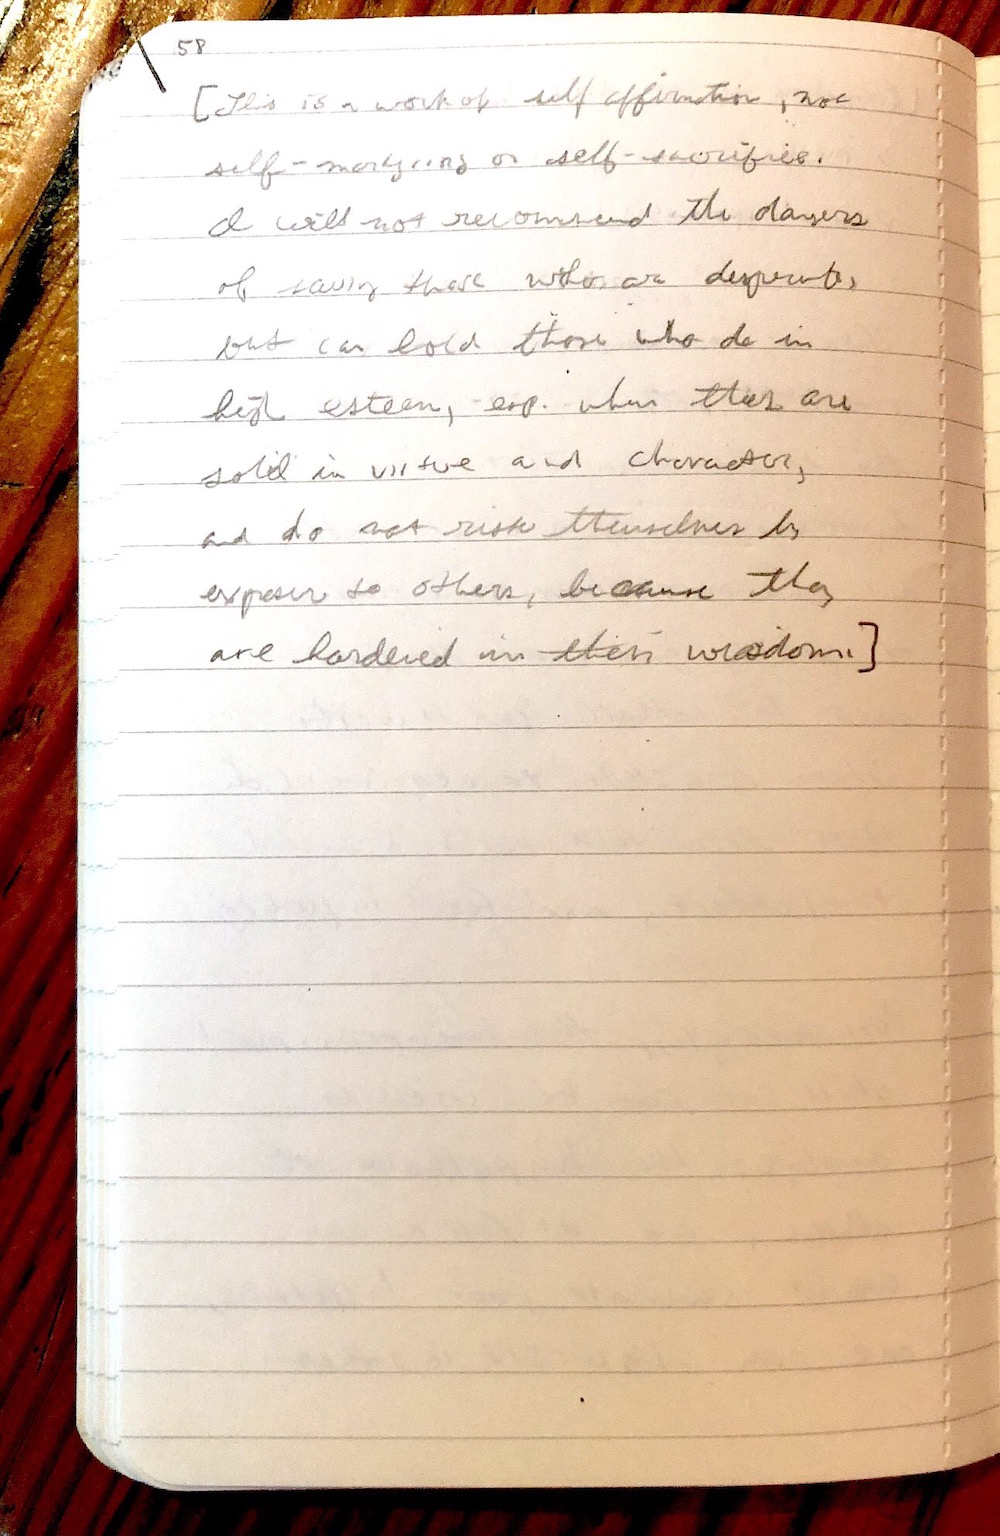 58
[This is a work of self affirmation, not
self-martyring or self-sacrifice.
I will not recommend the dangers
of saving those who are desperate,
but can hold those who do in
high esteem, esp. when they are
solid in virtue and character,
and do not risk themselves by
exposure to others, because they
are hardened in their wisdom.]